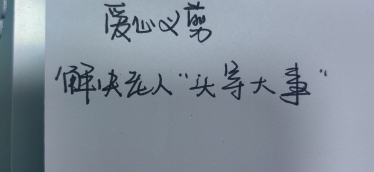 爱心义剪
解决老人“头等大事”